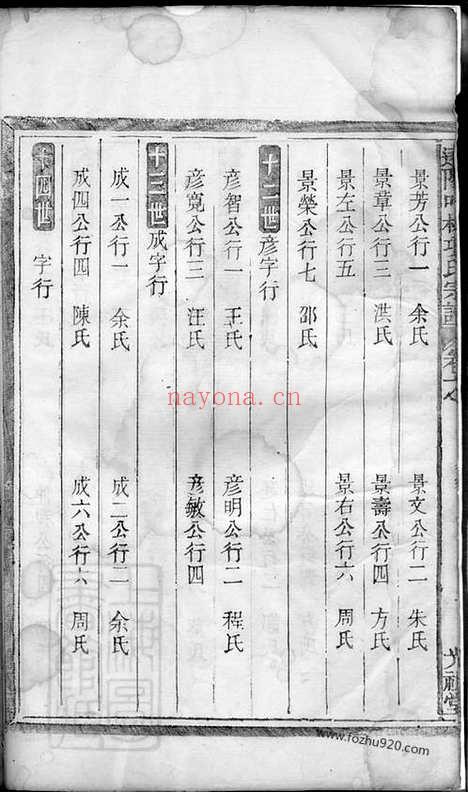 景芳公行一　余氏　景文公行二　朱氏
景章公行三　洪氏　景壽公行四　方氏
景左公行五　景右公行六　周氏
景榮公行七　邵氏
十二世　彦字行
彦智公行一　王氏　彦明公行二　程氏
彦寬公行三　汪氏　彦敏公行四
十三世　成字行
成一公行一　余氏　成二公行二　余氏
成四公行四　陳氏　成六公行六　周氏
十四世　字行
nayona.cn
www.fozhu920.com